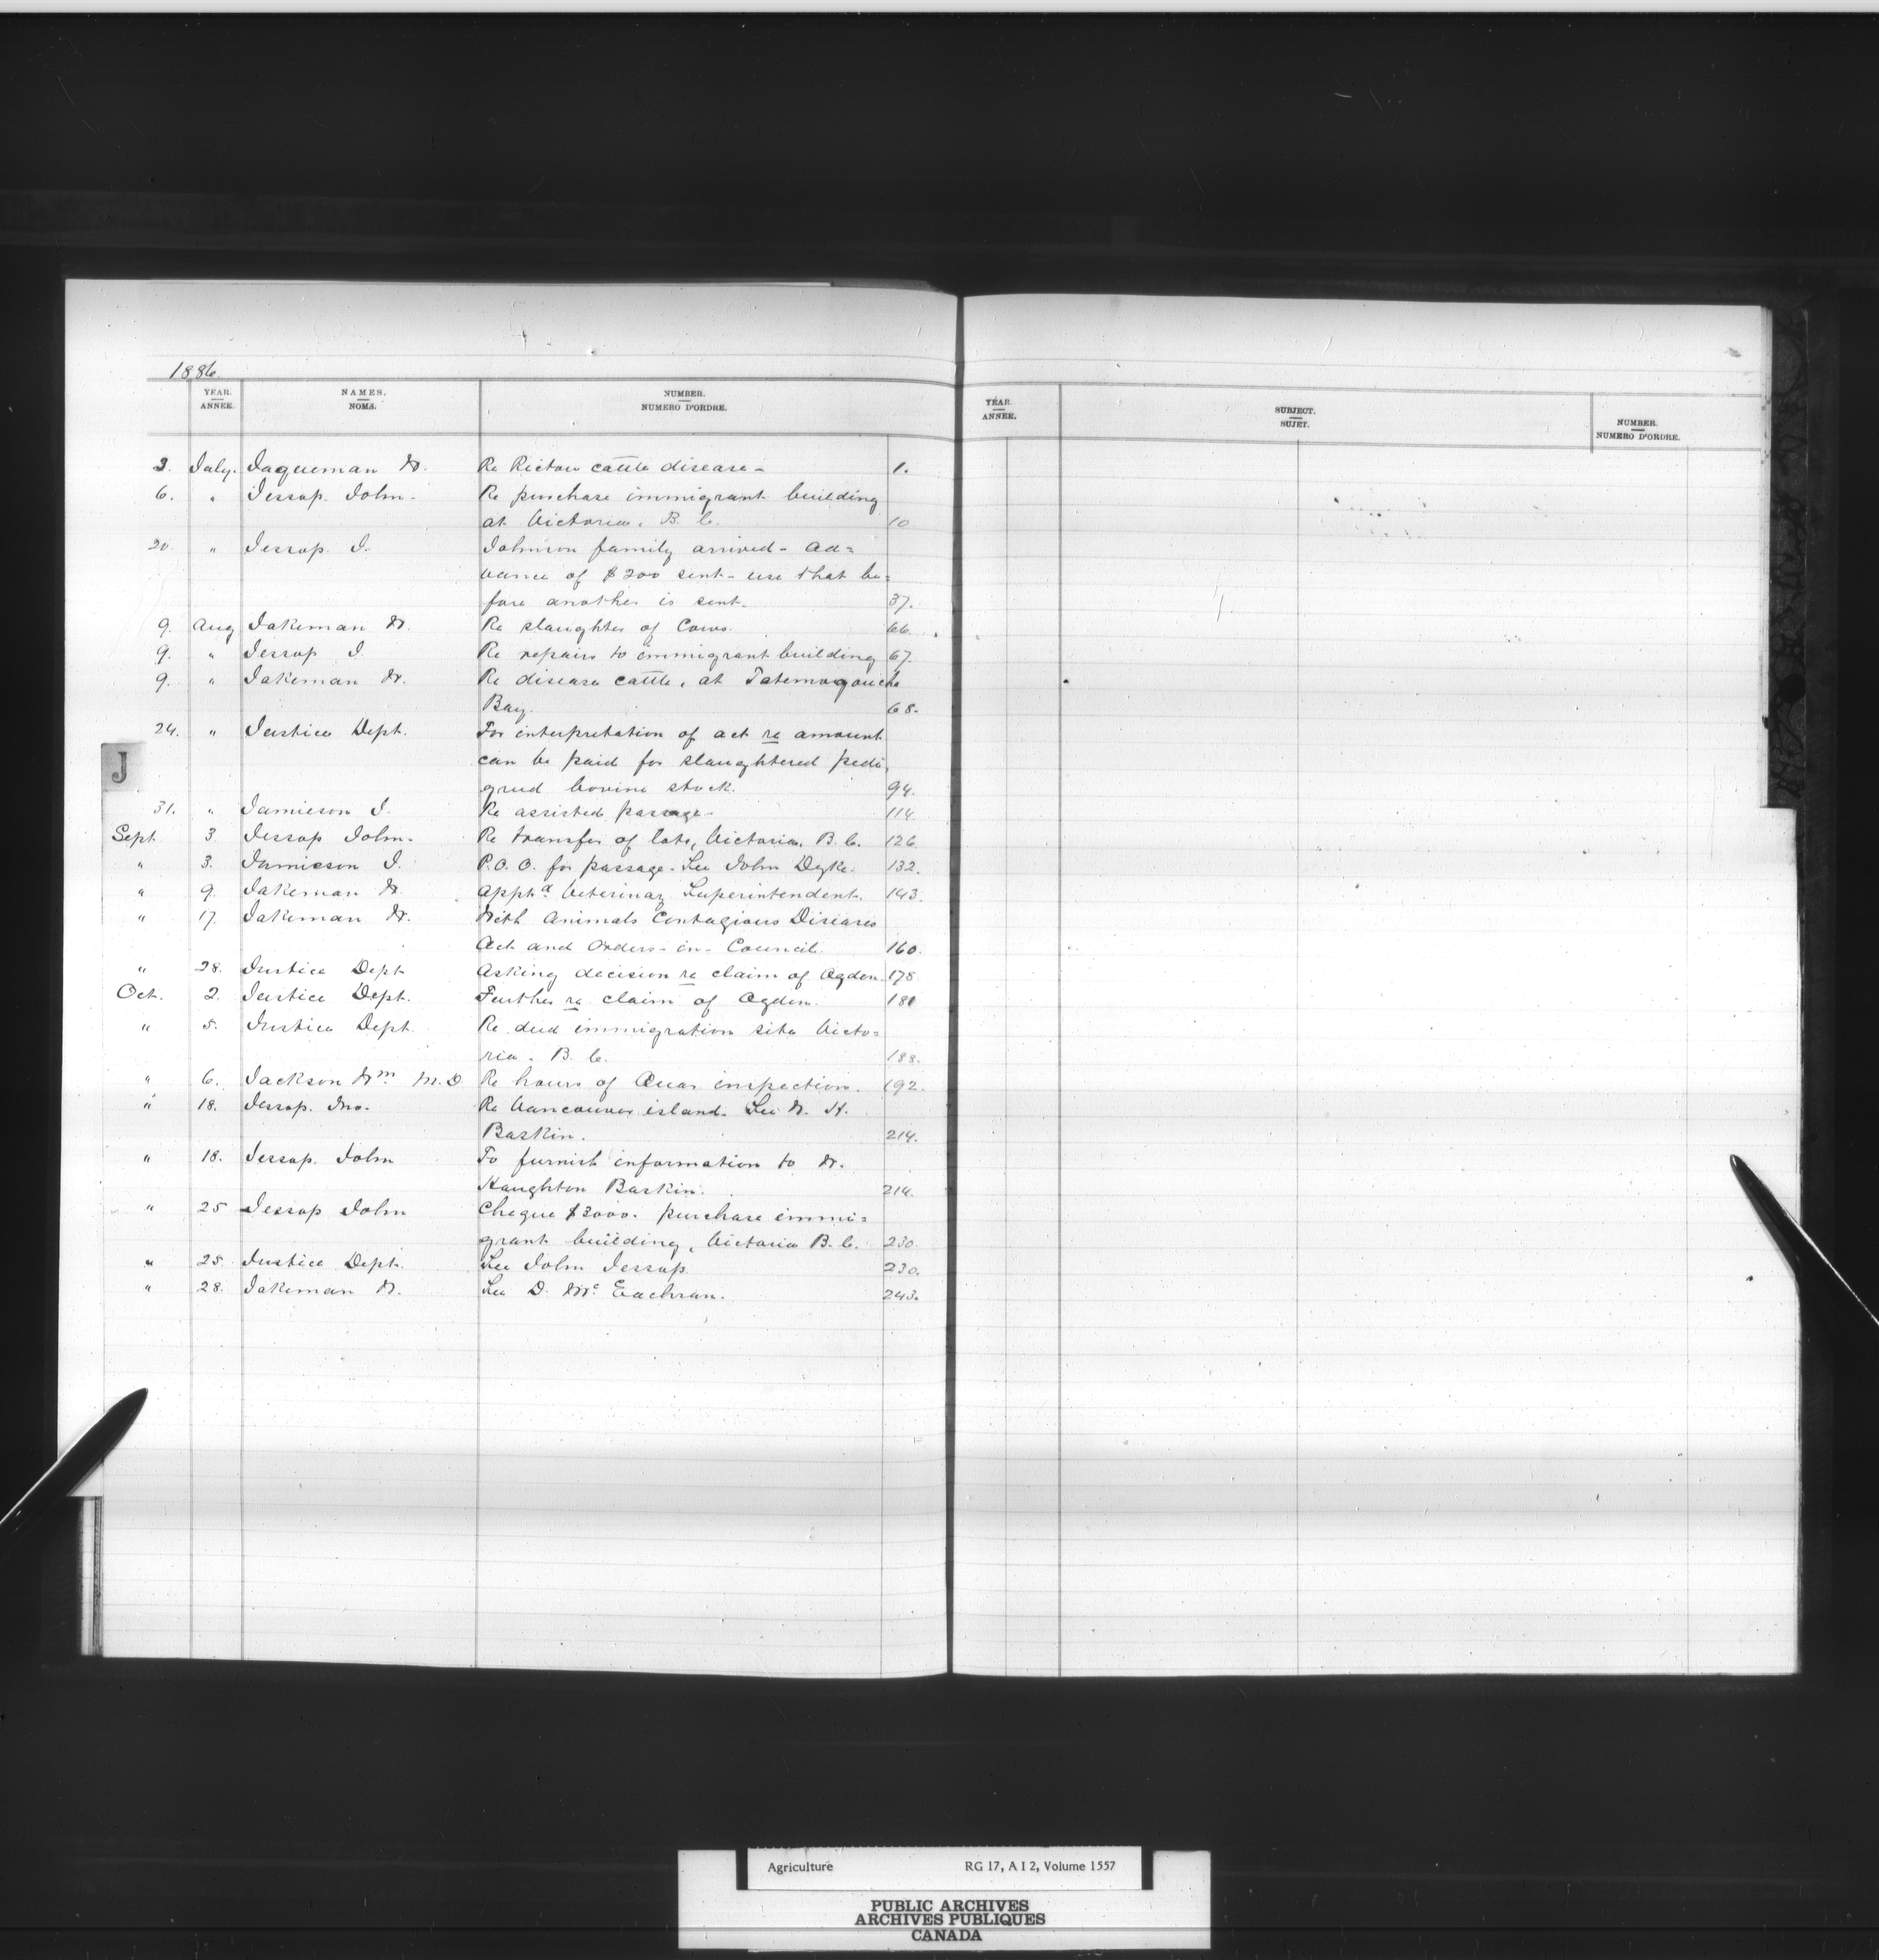 1886.
YEAR. NAMES. NUMBER.
ANNEE. NOMS. NUMERO D'ORDRE.
YEAR. SUBJECT. NUMBER.
ANNEE. SUJET. NUMERO D'ORDRE.
3. July. Jaqueman W. Re Pictou cattle disease - 1.
6. " Jessop. John - Re purchase immigrant building
at Victoria, B. C. 10
20. " Jessop. J. Johnson family arrived - ad=
vance of $200 sent - use that be=
fore another is sent. 37.
9. Aug Jakeman W. Re slaughter of Cows. 66.
9. " Jessop J. Re repairs to immigrant building 67.
9. " Jakeman W. Re disease cattle, at Tatemagouche
Bay. 68.
24. " Justice Dept. For interpretation of act re amount
can be paid for slaughtered pedi,
greed bovine stock. 94.
J
31. " Jamieson J. Re assisted passage - 114.
Sept 3 Jessop John - Re transfer of lots, Victoria, B. C. 126
" 3. Jamieson J. P.O.O. for passage - See John Dyke. 132.
" 9. Jakeman W. Appt.d Veterinary Superintendent. 143.
" 17. Jakeman W. With Animals Contagious Diseases
Act and Orders - in - Council. 160.
" 28. Justice Dept Asking decision re claim of Ogden. 178.
Oct. 2. Justice Dept. Further re claim of Ogden. 181
" 5. Justice Dept. Re deed immigration site Victo=
ria. B. C. 188.
" 6. Jackson Wm M.D Re hours of Quar inspection. 192.
" 18. Jessop. Jno. Re Vancouver island. See W. H.
Baskin. 214.
" 18. Jessop. John To furnish information to W.
Haughton Baskin. 214.
" 25 Jessop John Cheque $3000. purchase immi=
grant building, Victoria B. C. 230.
" 25. Justice Dept. See John Jessop. 230.
" 28. Jakeman W. See D. McEachran. 243.
Agriculture RG 17, A I 2, Volume 1557
PUBLIC ARCHIVES
ARCHIVES PUBLIQUES
CANADA